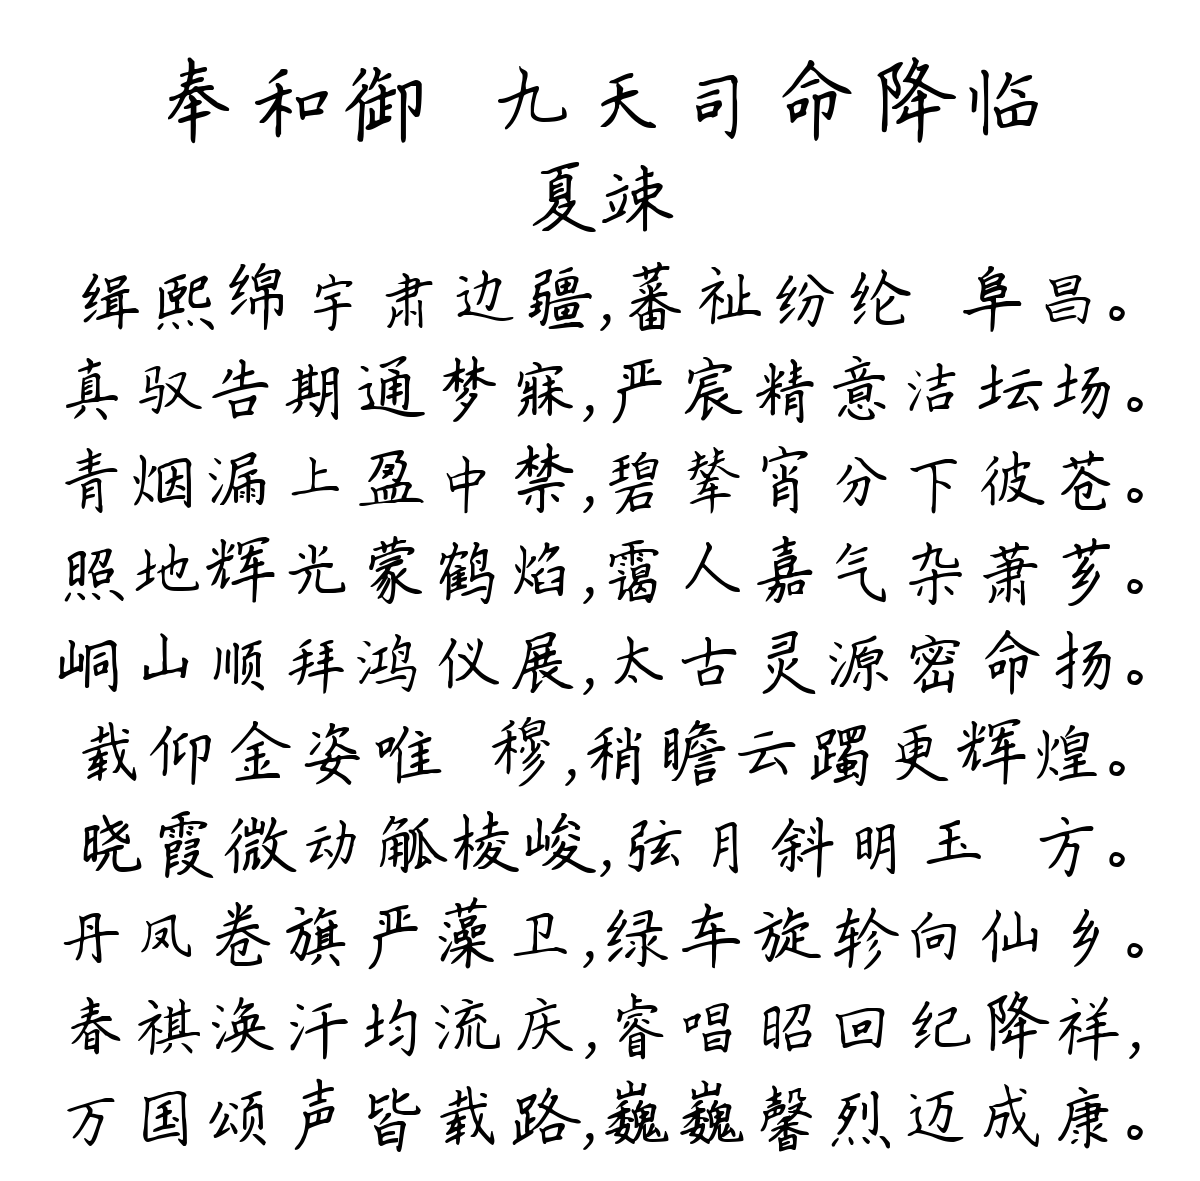 奉和御 九天司命降临
夏竦
缉熙绵宇肃边疆,蕃祉纷纶 阜昌。
真驭告期通梦寐,严宸精意洁坛场。
青烟漏上盈中禁,碧辇宵分下彼苍。
照地辉光蒙鹤焰,霭人嘉气杂萧芗。
峒山顺拜鸿仪展,太古灵源密命扬。
载仰金姿唯 穆,稍瞻云躅更辉煌。
晓霞微动觚棱峻,弦月斜明玉 方。
丹凤卷旗严藻卫,绿车旋轸向仙乡。
春祺涣汗均流庆,睿唱昭回纪降祥,
万国颂声皆载路,巍巍馨烈迈成康。